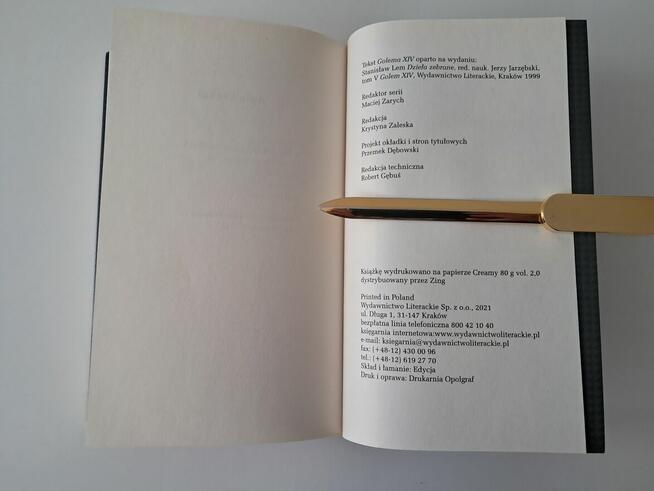 Tekst Golema XIV oparto na wydaniu:
Stanisław Lem Dzieła zebrane, red. nauk. Jerzy Jarzębski,
tom V Golem XIV, Wydawnictwo Literackie, Kraków 1999
Redaktor serii
Maciej Zarych
Redakcja
Krystyna Zaleska
Projekt okładki i stron tytułowych
Przemek Dębowski
Redakcja techniczna
Robert Gębuś
Książkę wydrukowano na papierze Creamy 80 g vol. 2,0
dystrybuowany przez Zing
Printed in Poland
Wydawnictwo Literackie Sp. z o.o., 2021
ul. Długa 1, 31-147 Kraków
bezpłatna linia telefoniczna 800 42 10 40
księgarnia internetowa:www.wydawnictwoliterackie.pl
e-mail: ksiegarnia@wydawnictwoliterackie.pl
fax: (+48-12) 430 00 96
tel.: (+48-12) 619 27 70
Skład i łamanie: Edycja
Druk i oprawa: Drukarnia Opolgraf